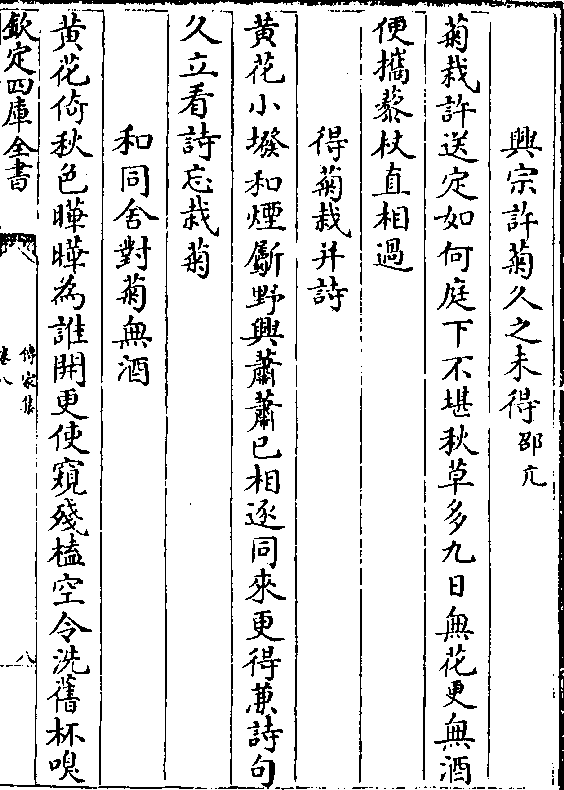 興宗許菊久之未得邵亢
菊栽許送定如何庭下不堪秋草多九日無花更無酒
便攜藜杖直相過
得菊栽并詩
黄花小撥和煙斸野興蕭蕭已相逐同來更得兼詩句
久立看詩忘栽菊
和同舍對菊無酒
黄花倚秋色曄曄為誰開更使窺殘榼空令洗舊杯嗅
欽定四庫全書
傳家集
卷八
八